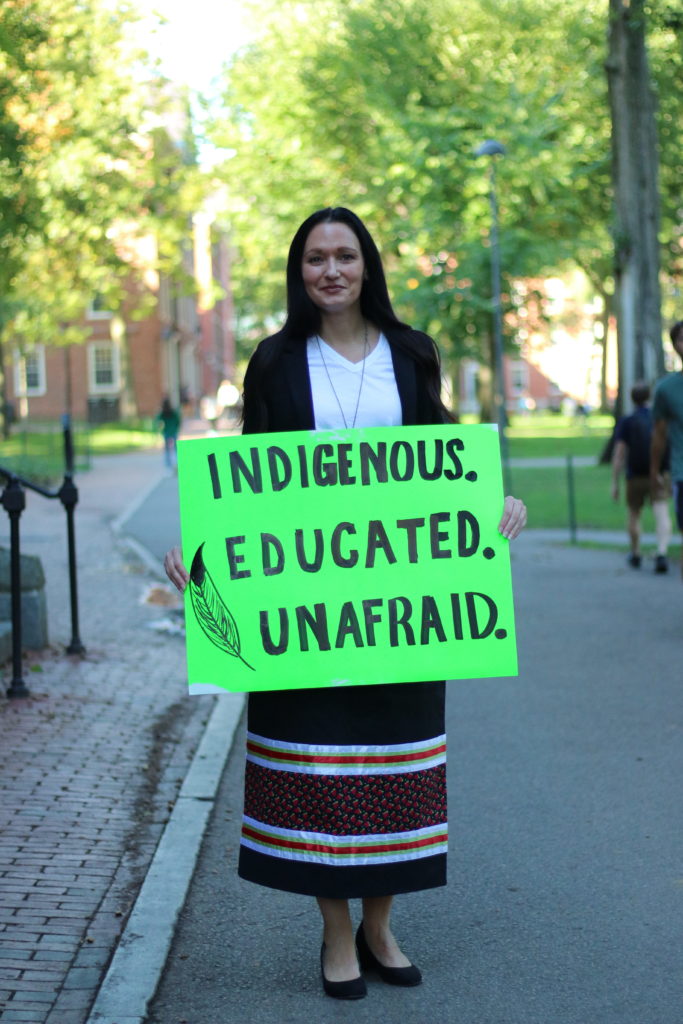 INDIGENOUS.
EDUCATED.
UNAFRAID.